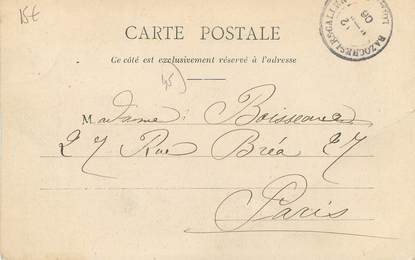 15€
CARTE POSTALE
Ce côté est exclusivement réservé à l'adresse
45
BAZOCHES-LES-GALLER
12
03
Madame Boisseau
27 Rue Bréa 27
Paris